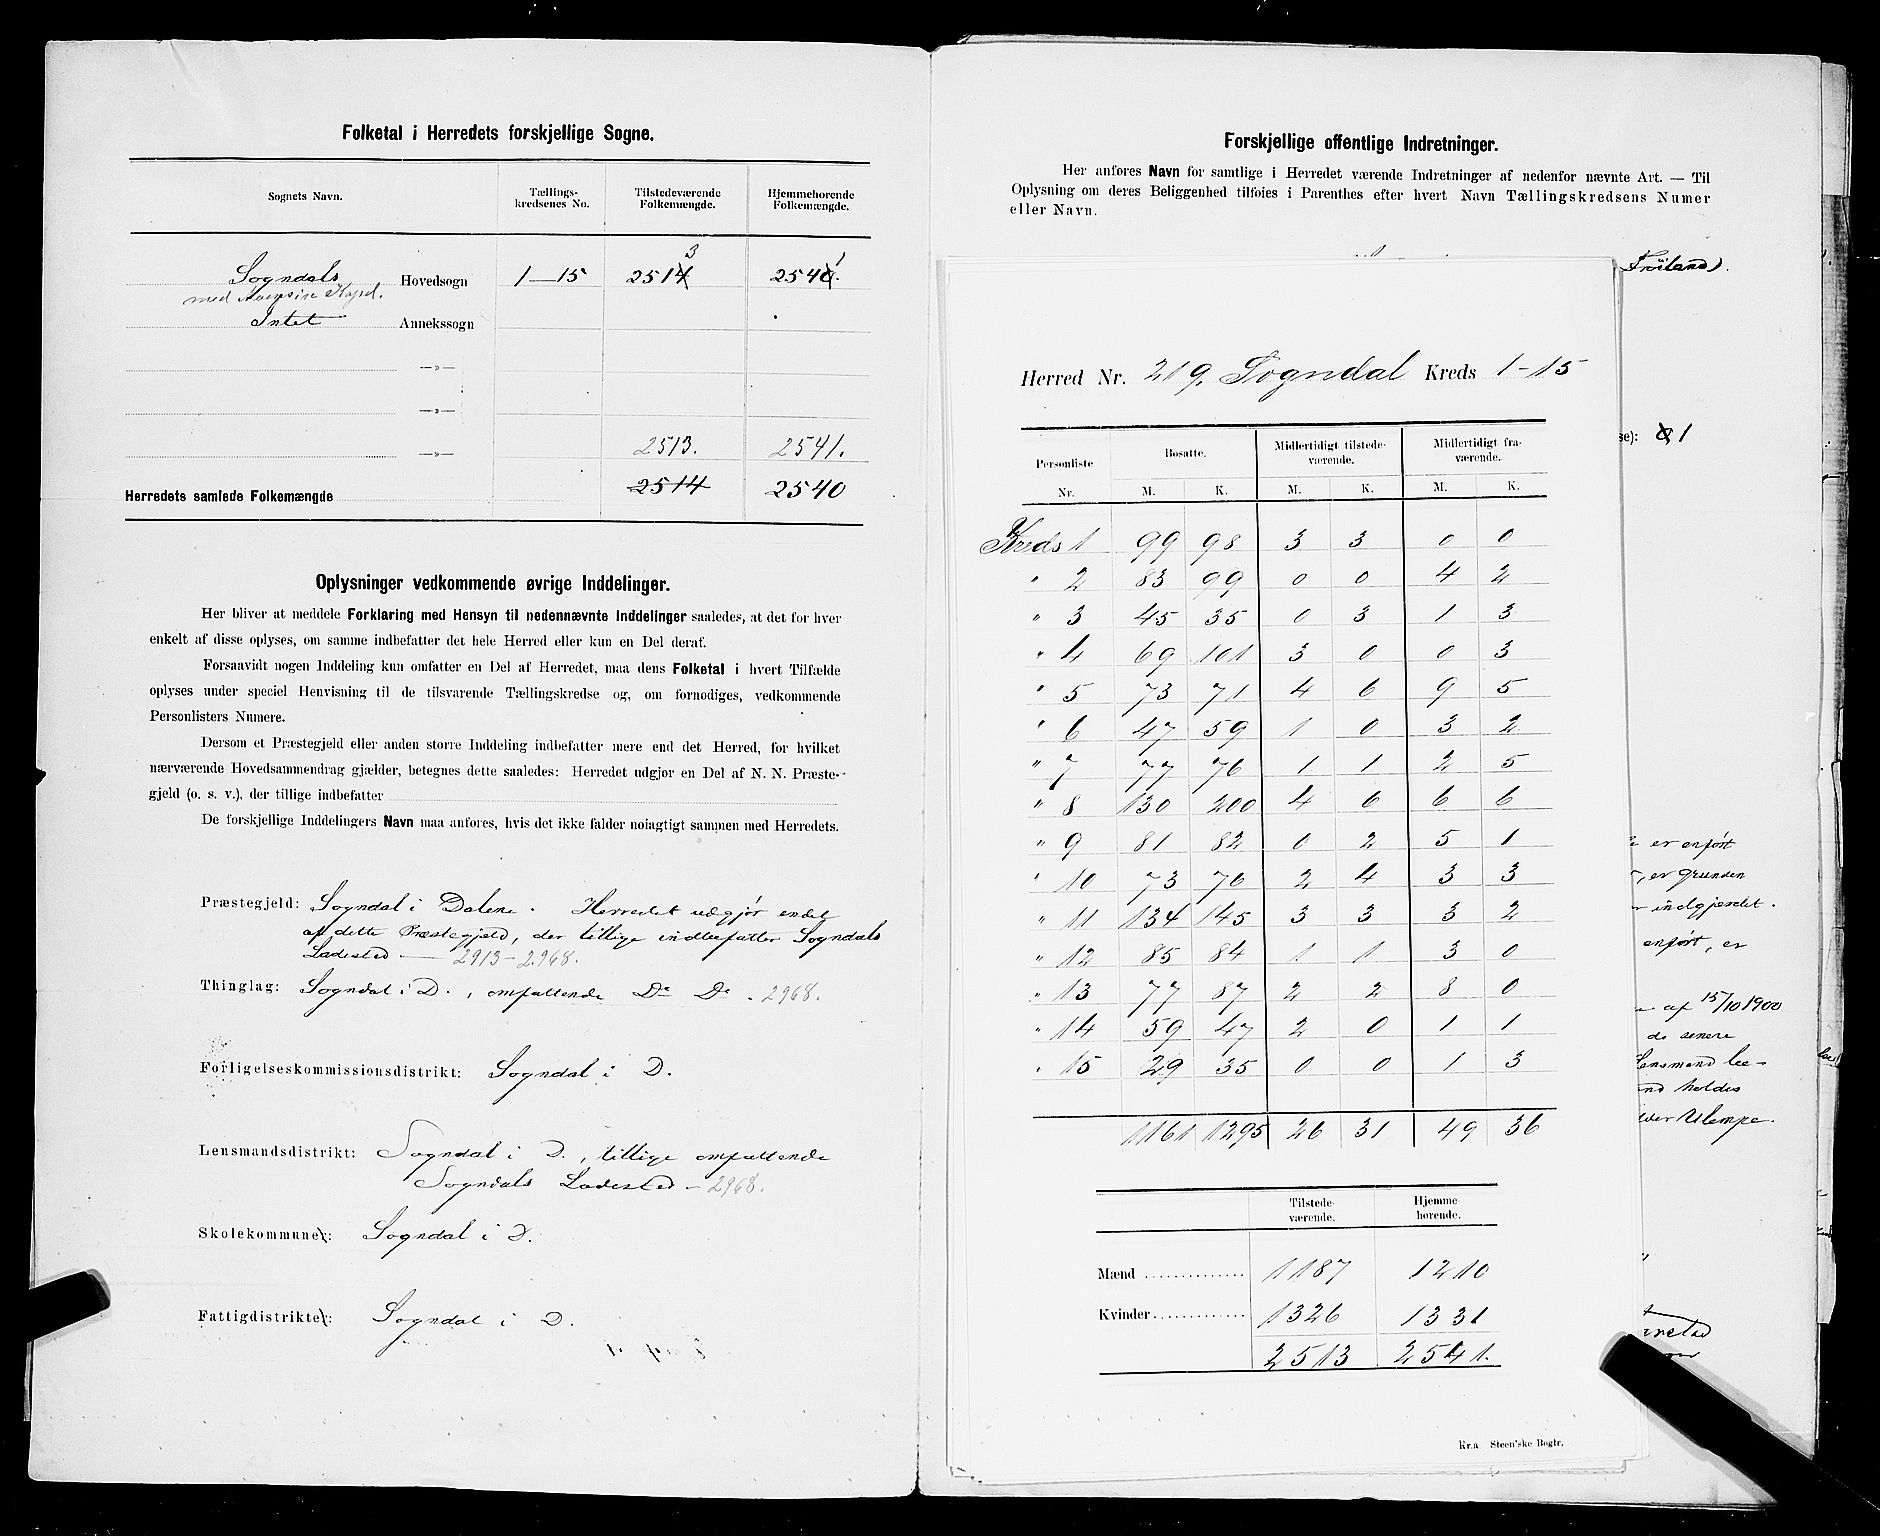 Folketal i Herredets forskjellige Sogne.
Sognets Navn. Tællings-kredsenes No. Tilstedeværende Folkemængde. Hjemmehørende Folkemængde.
3 1
Sogndals Hovedsogn 1—15 2514 2540.
med Aaensire Kapel.
Intet Annekssogn
—»—
—»—
—»— 2513. 2541.
Herredets samlede Folkemængde 2514 2540
Oplysninger vedkommende øvrige Inddelinger.
Her bliver at meddele Forklaring med Hensyn til nedennævnte Inddelinger saaledes, at det for hver
enkelt af disse oplyses, om samme indbefatter det hele Herred eller kun en Del deraf.
Forsaavidt nogen Inddeling kun omfatter en Del af Herredet, maa dens Folketal i hvert Tilfælde
oplyses under speciel Henvisning til de tilsvarende Tællingskredse og, om fornødiges, vedkommende
Personlisters Numere.
Dersom et Præstegjeld eller anden større Inddeling indbefatter mere end det Herred, for hvilket
nærværende Hovedsammendrag gjælder, betegnes dette saaledes: Herredet udgjør en Del af N. N. Præste-
gjeld (o. s. v.), der tillige indbefatter
De forskjellige Inddelingers Navn maa anføres, hvis det ikke falder nøiagtigt sammen med Herredets.
Præstegjeld: Sogndal i Dalene. Herredet udgjør endel
af dette Præstegjeld, der tillige indbefatter Sogndals
Ladested — 2913-2968.
Thinglag: Sogndal i D., omfattende Do Do. 2968.
Forligelseskommissionsdistrikt: Sogndal i D.
Lensmandsdistrikt: Sogndal i D., tillige omfattende
Sogndals Ladested - 2968.
Skolekommune: Sogndal i D.
Fattigdistrikt: Sogndal i D.
Forskjellige offentlige Indretninger.
Her anføres Navn for samtlige i Herredet værende Indretninger af nedenfor nævnte Art. — Til
Oplysning om deres Beliggenhed tilføies i Parenthes efter hvert Navn Tællingskredsens Numer
eller Navn.
Frøiland).
Herred Nr. 219. Sogndal Kreds 1-15
Personliste Nr. Bosatte. M. K. Midlertidigt tilstede-værende. M. K. Midlertidigt fra-værende. M. K.
Kreds 1 99 98 3 3 0 0
" 2 83 99 0 0 4 2
" 3 45 35 0 3 1 3
" 4 69 101 3 0 0 3
" 5 73 71 4 6 9 5
" 6 47 59 1 0 3 2
" 7 77 76 1 1 2 5
" 8 130 200 4 6 6 6
" 9 81 82 0 2 5 1
" 10 73 76 2 4 3 3
" 11 134 145 3 3 3 2
" 12 85 84 1 1 3 0
" 13 77 87 2 2 8 0
" 14 59 47 2 0 1 1
" 15 29 35 0 0 1 3
1161 1295 26 31 49 36
Tilstede-værende. Hjemme-hørende.
Mænd 1187 1210
Kvinder 1326 1331
2513 2541.
Kr.a. Steen'ske Bogtr.
se): 1
er anført
, er grunden
indgjærdet.
anført, er
af 15/10 1900
de senere
Lensmand be-
holdes
Ulempe.